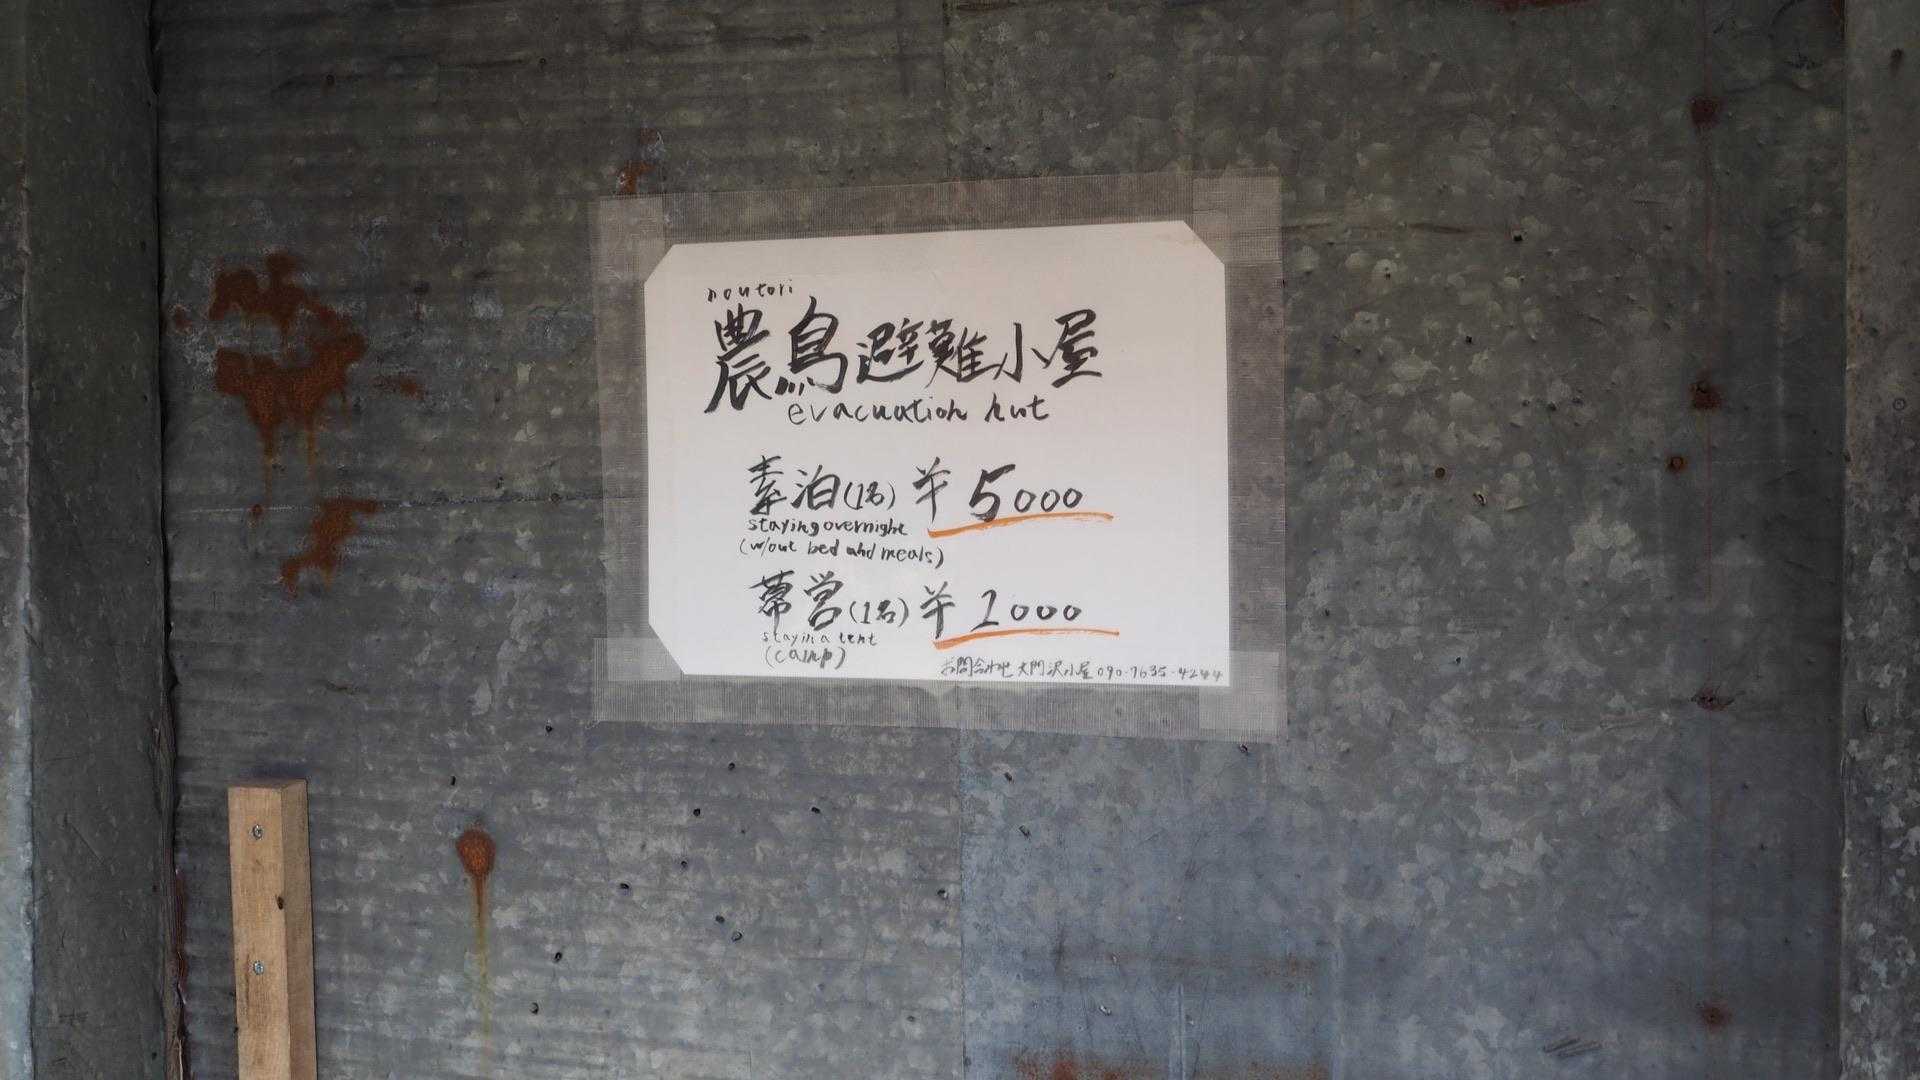 noutori
農鳥避難小屋
evacuation hut
素泊(1名) ¥5000
staying overnight
(w/out bed and meals)
幕営(1名) ¥1000
stay in a tent
(camp)
お問合わせ 大門沢小屋 090-7635-4244